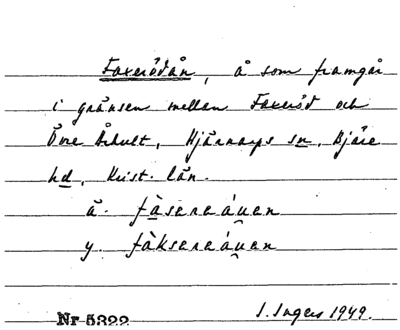 Faxerödån, å som framgår
i gränsen mellan Faxeröd och
Övre Århult, Hjärnarps sn, Bjäre
hd, Krist. län.
ä. fàsereáu̯en
y. fàksereáu̯en
Nr 5322 I. Ingers 1949.